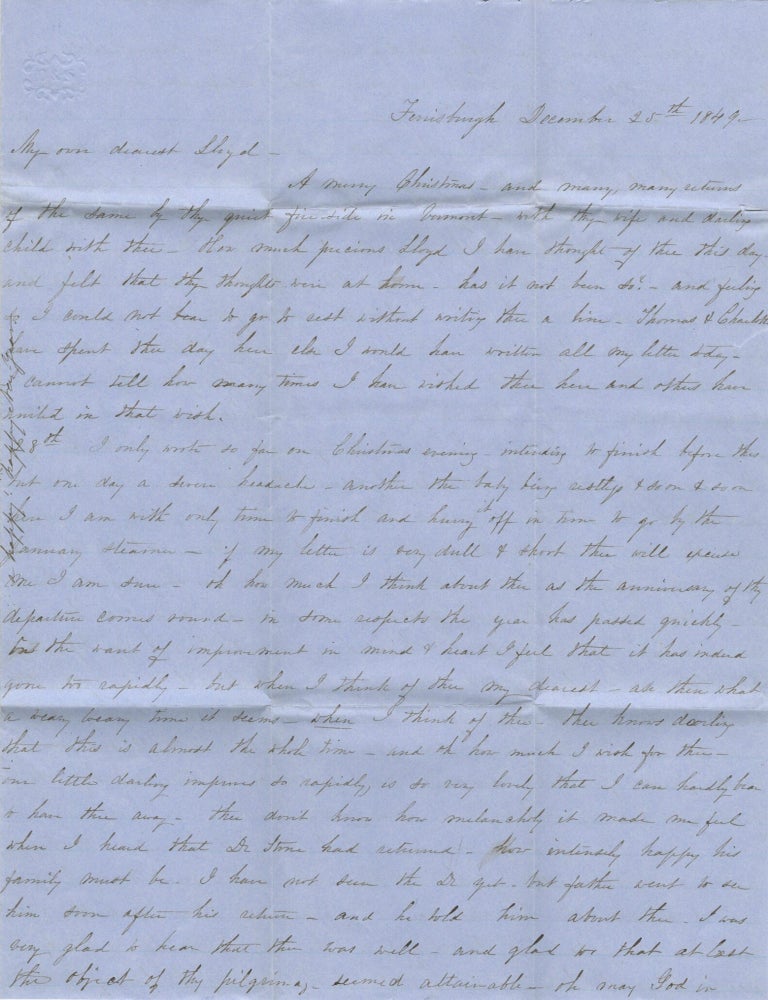 Ferrisburgh December 25th 1849-
My own dearest Lloyd -
A merry Christmas - and many, many returns
of the same by thy quiet fire-side in Vermont - with thy wife and darling
child with thee - How much precious Lloyd I have thought of thee this day -
and felt that thy thoughts were at home - has it not been so? - and feeling
so I could not bear to go to rest without writing thee a line - Thomas & Charlotte
have spent the day here else I would have written all my letter today -
I cannot tell how many times I have wished thee here and others have
united in that wish.
28th I only wrote so far on Christmas evening - intending to finish before this
but one day a severe headache - another the baby being restless & soon & soon
here I am with only time to finish and hurry it off in time to go by the
January steamer - if my letter is very dull & short thee will excuse
me I am sure - oh how much I think about thee as the anniversary of thy
departure comes round - in some respects the year has passed quickly -
the want of improvement in mind & heart I feel that it has indeed
gone too rapidly - but when I think of thee my dearest - ah then what
a weary weary time it seems - when I think of thee - thee knows darling
that this is almost the whole time - and oh how much I wish for thee -
our little darling improves so rapidly, is so very lovely that I can hardly bear
to have thee away - thee don't know how melancholy it made me feel
when I heard that Dr Stone had returned - how intensely happy his
family must be - I have not seen the Dr yet - but father went to see
him soon after his return - and he told him about thee - I was
very glad to hear that thee was well - and glad too that at last
the object of thy pilgrimage seemed attainable - oh may God in
happy! happy